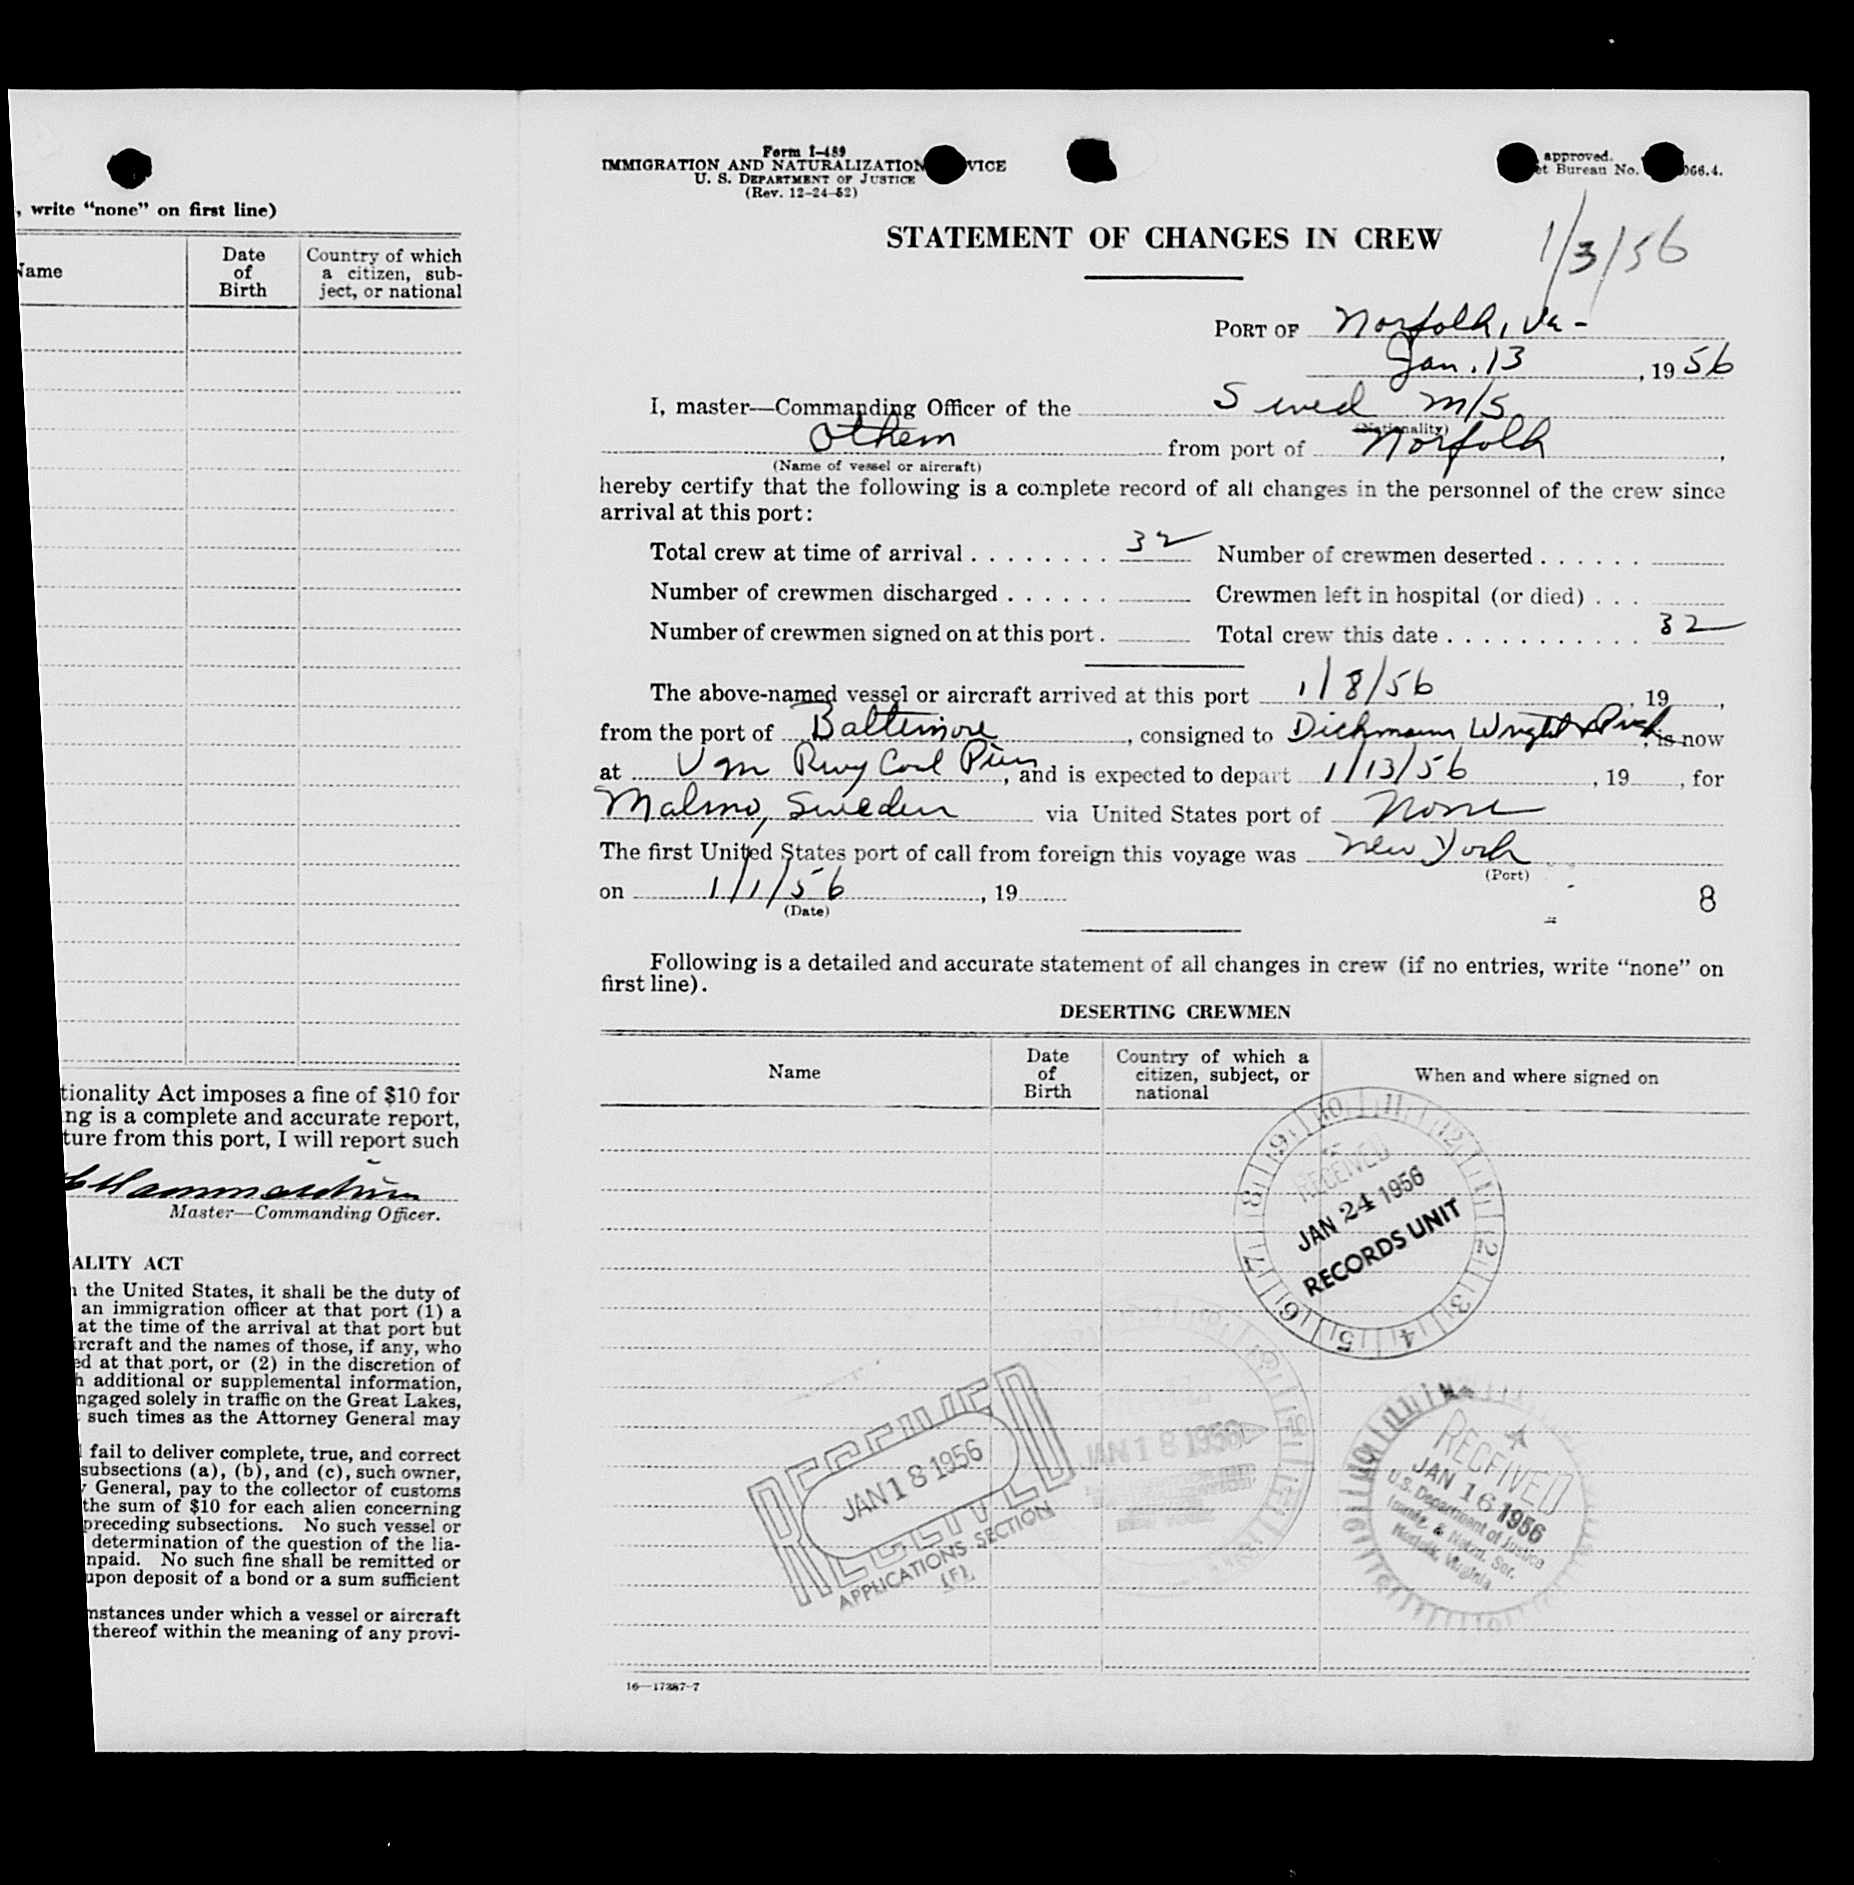 , write "none" on first line)
Name
Date
of
Birth
Country of which
a citizen, sub-
ject, or national
tionality Act imposes a fine of $10 for
ng is a complete and accurate report,
ture from this port, I will report such
Master—Commanding Officer.
ALITY ACT
the United States, it shall be the duty of
an immigration officer at that port (1) a
at the time of the arrival at that port but
ircraft and the names of those, if any, who
ed at that port, or (2) in the discretion of
h additional or supplemental information,
ngaged solely in traffic on the Great Lakes,
such times as the Attorney General may
fail to deliver complete, true, and correct
subsections (a), (b), and (c), such owner,
General, pay to the collector of customs
the sum of $10 for each alien concerning
preceding subsections. No such vessel or
determination of the question of the lia-
npaid. No such fine shall be remitted or
upon deposit of a bond or a sum sufficient
mstances under which a vessel or aircraft
thereof within the meaning of any provi-
Form I-489
IMMIGRATION AND NATURALIZATION VICE
U. S. DEPARTMENT OF JUSTICE
(Rev. 12-24-52)
approved.
et Bureau No. 066.4.
STATEMENT OF CHANGES IN CREW
1/3/56
PORT OF Norfolk, Va-
Jan. 13, 1956
I, master—Commanding Officer of the Swed M/S
(Nationality)
Othem from port of Norfolk,
(Name of vessel or aircraft)
hereby certify that the following is a complete record of all changes in the personnel of the crew since
arrival at this port:
Total crew at time of arrival . . . . . . . . 32 Number of crewmen deserted . . . . . .
Number of crewmen discharged . . . . . . Crewmen left in hospital (or died) . . .
Number of crewmen signed on at this port . Total crew this date . . . . . . . . . . . . 32
The above-named vessel or aircraft arrived at this port 1/8/56, 19,
from the port of Baltimore, consigned to Dichmann Wright & Pugh, is now
at Vgn Rwy Coal Pier, and is expected to depart 1/13/56, 19, for
Malmo, Sweden via United States port of None
The first United States port of call from foreign this voyage was New York
(Port)
on 1/1/56, 19
(Date)
8
Following is a detailed and accurate statement of all changes in crew (if no entries, write "none" on
first line).
DESERTING CREWMEN
Name
Date
of
Birth
Country of which a
citizen, subject, or
national
When and where signed on
RECEIVED
JAN 24 1956
RECORDS UNIT
10 11 12 1 2 3 4 5 6 7 8 9
RECEIVED
JAN 18 1956
RECEIVED
APPLICATIONS SECTION
(F)
JAN 18 1956
RECEIVED
JAN 16 1956
U.S. Department of Justice
Immig. & Natzl. Ser.
Norfolk, Virginia
16—17387-7